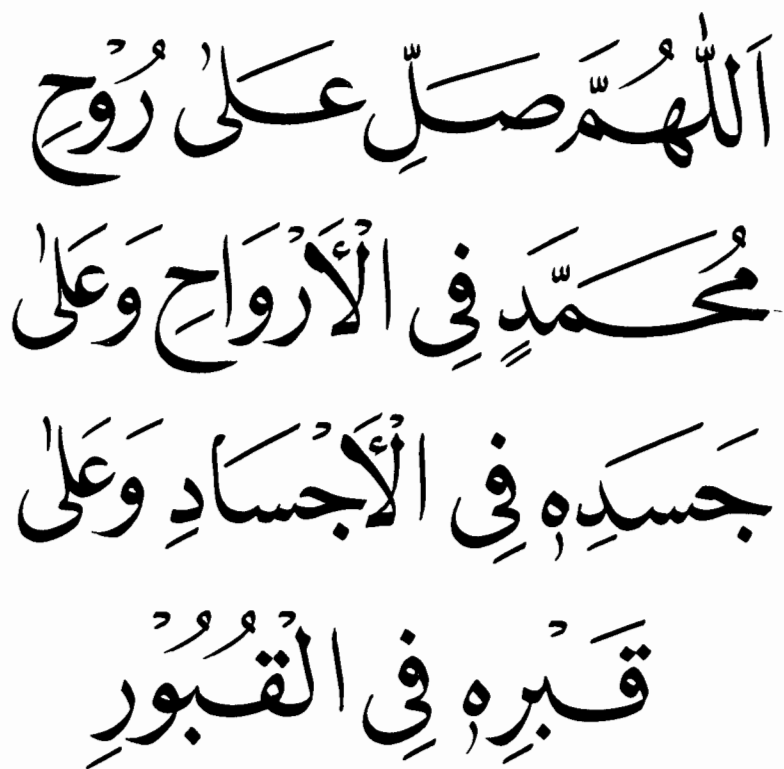 اَللّٰهُمَّ صَلِّ عَلٰى رُوْحِ
مُحَمَّدٍ فِى الْاَرْوَاحِ وَعَلٰى
جَسَدِهٖ فِى الْاَجْسَادِ وَعَلٰى
قَبْرِهٖ فِى الْقُبُوْرِ